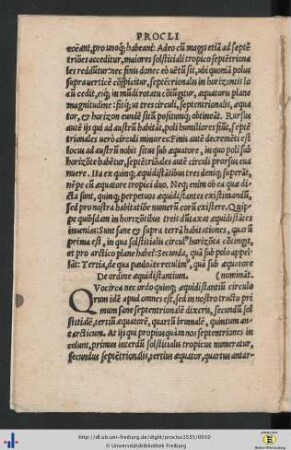 PROCLI
eoēant, pro unoq; habeant: Adeo cū magis etiā ad septē
triōes acceditur, maiores solstitiali tropico septētriona
les reddūtur: nec finis donec eò uētū sit, ubi quoniā polus
supra uerticē cōspicitur, septētrionalis in horizontis lo
cū cedit, eiq; in mūdi rotatu cōiūgitur, aequatoru plane
magnitudine: sitq; ut tres circuli, septentrionalis, aequa
tor, & horizon eiusdē sitū positumq; obtineāt. Rursus
autē ijs qui ad austrū habitāt, poli humiliores fiūt, septē
trionales uerò circuli minores: Finis autē decremēti est
locus ad austrū nobis situs sub aequatore, in quo poli sub
horizōte habētur, septētriōales autē circuli prorsus eua
nuere. Ita ex quinq; aequidistātibus tres deniq; superāt,
nēpe cū aequatore tropici duo. Neq; enim ob ea quae di
cta sunt, quinq; perpetuos aequidistantes existimandū,
sed pro nostra habitatiōe numerū eorū existere. Quip=
pe quibusdam in horizōtibus tres dūtaxat aequidistātes
inuenias: Sunt sane & supra terrā habitationes, quarū
prima est, in qua solstitialis circul⁹ horizōta cōtingit,
et pro arctico plane habet: Secunda, quā sub polo appel=
lāt: Tertia, de qua paulo āte retulim⁹, quā sub aequatore
De ordine aequidistantium. (nomināt.
QVocirca nec ordo quinq; aequidistantiū circulo
rum idē apud omnes est, sed in nostro tractu pri
mum sane septentrionalē dixeris, secundū sol
stitialē, tertiū aequatorē, quartū brumalē, quintum an=
tarcticum. At ijs qui propius quàm nos septentriones in
colunt, primus interdū solstitialis tropicus numeratur,
secundus septētrionalis, tertius aequator, quartus antar=
http://dl.ub.uni-freiburg.de/diglit/proclus1535/0010
© Universitätsbibliothek Freiburg